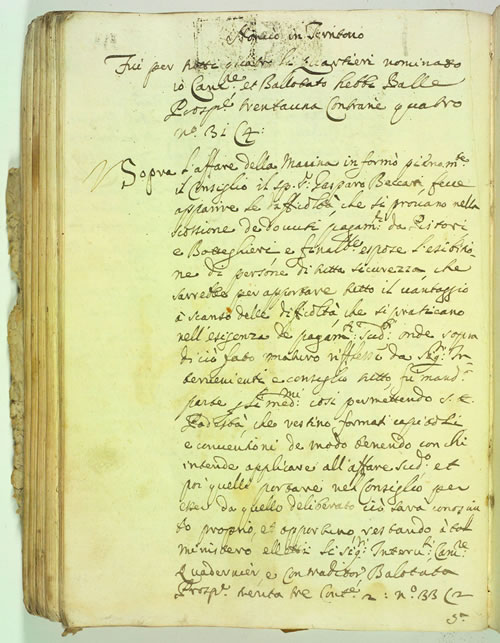 Noncio in Territorio
Fui per tutti quatro li quartieri nominato
io Canc.re et Ballotato hebbi Balle
Prosp.e trentauna Contrarie quatro
n.o 31 C 4:
Sopra l'affare della Macina informò pienam.te
il Consiglio il Sp. S.r Gasparo Beccari, fece
apparire le difficoltà, che si provano nella
scossione de dovuti pagam.ti da Pistori
e Botteghieri, e finalm.te espose l'esibitio-
ne di persone di tutta sicurezza, che
sarrebbe per apportare tutto il vantaggio
à scanso delle difficoltà, che si praticano
nell'esigenza de pagam.ti Sud.ti onde sopra
di ciò fatto maturo riflesso da Sig.ri In-
tervenienti e consiglio tutto, fu mand.a
parte, li med.mi così permettendo S. E.
Podestà, che vestino formati capitoli
e conventioni de modo tenendo con chi
intende applicare all'affare Sud.o et
poi quelli portare nel Consiglio per
esser da quello deliberato ciò sarà conosciu-
to proprio, et opportuno, restando à tal
ministero elletti li Sig.ri Interv.ti Canc.re
Quadernier, e Contraditor, Balotata
Prosp.e trenta tre Cont.e 2: n.o 33 C 2